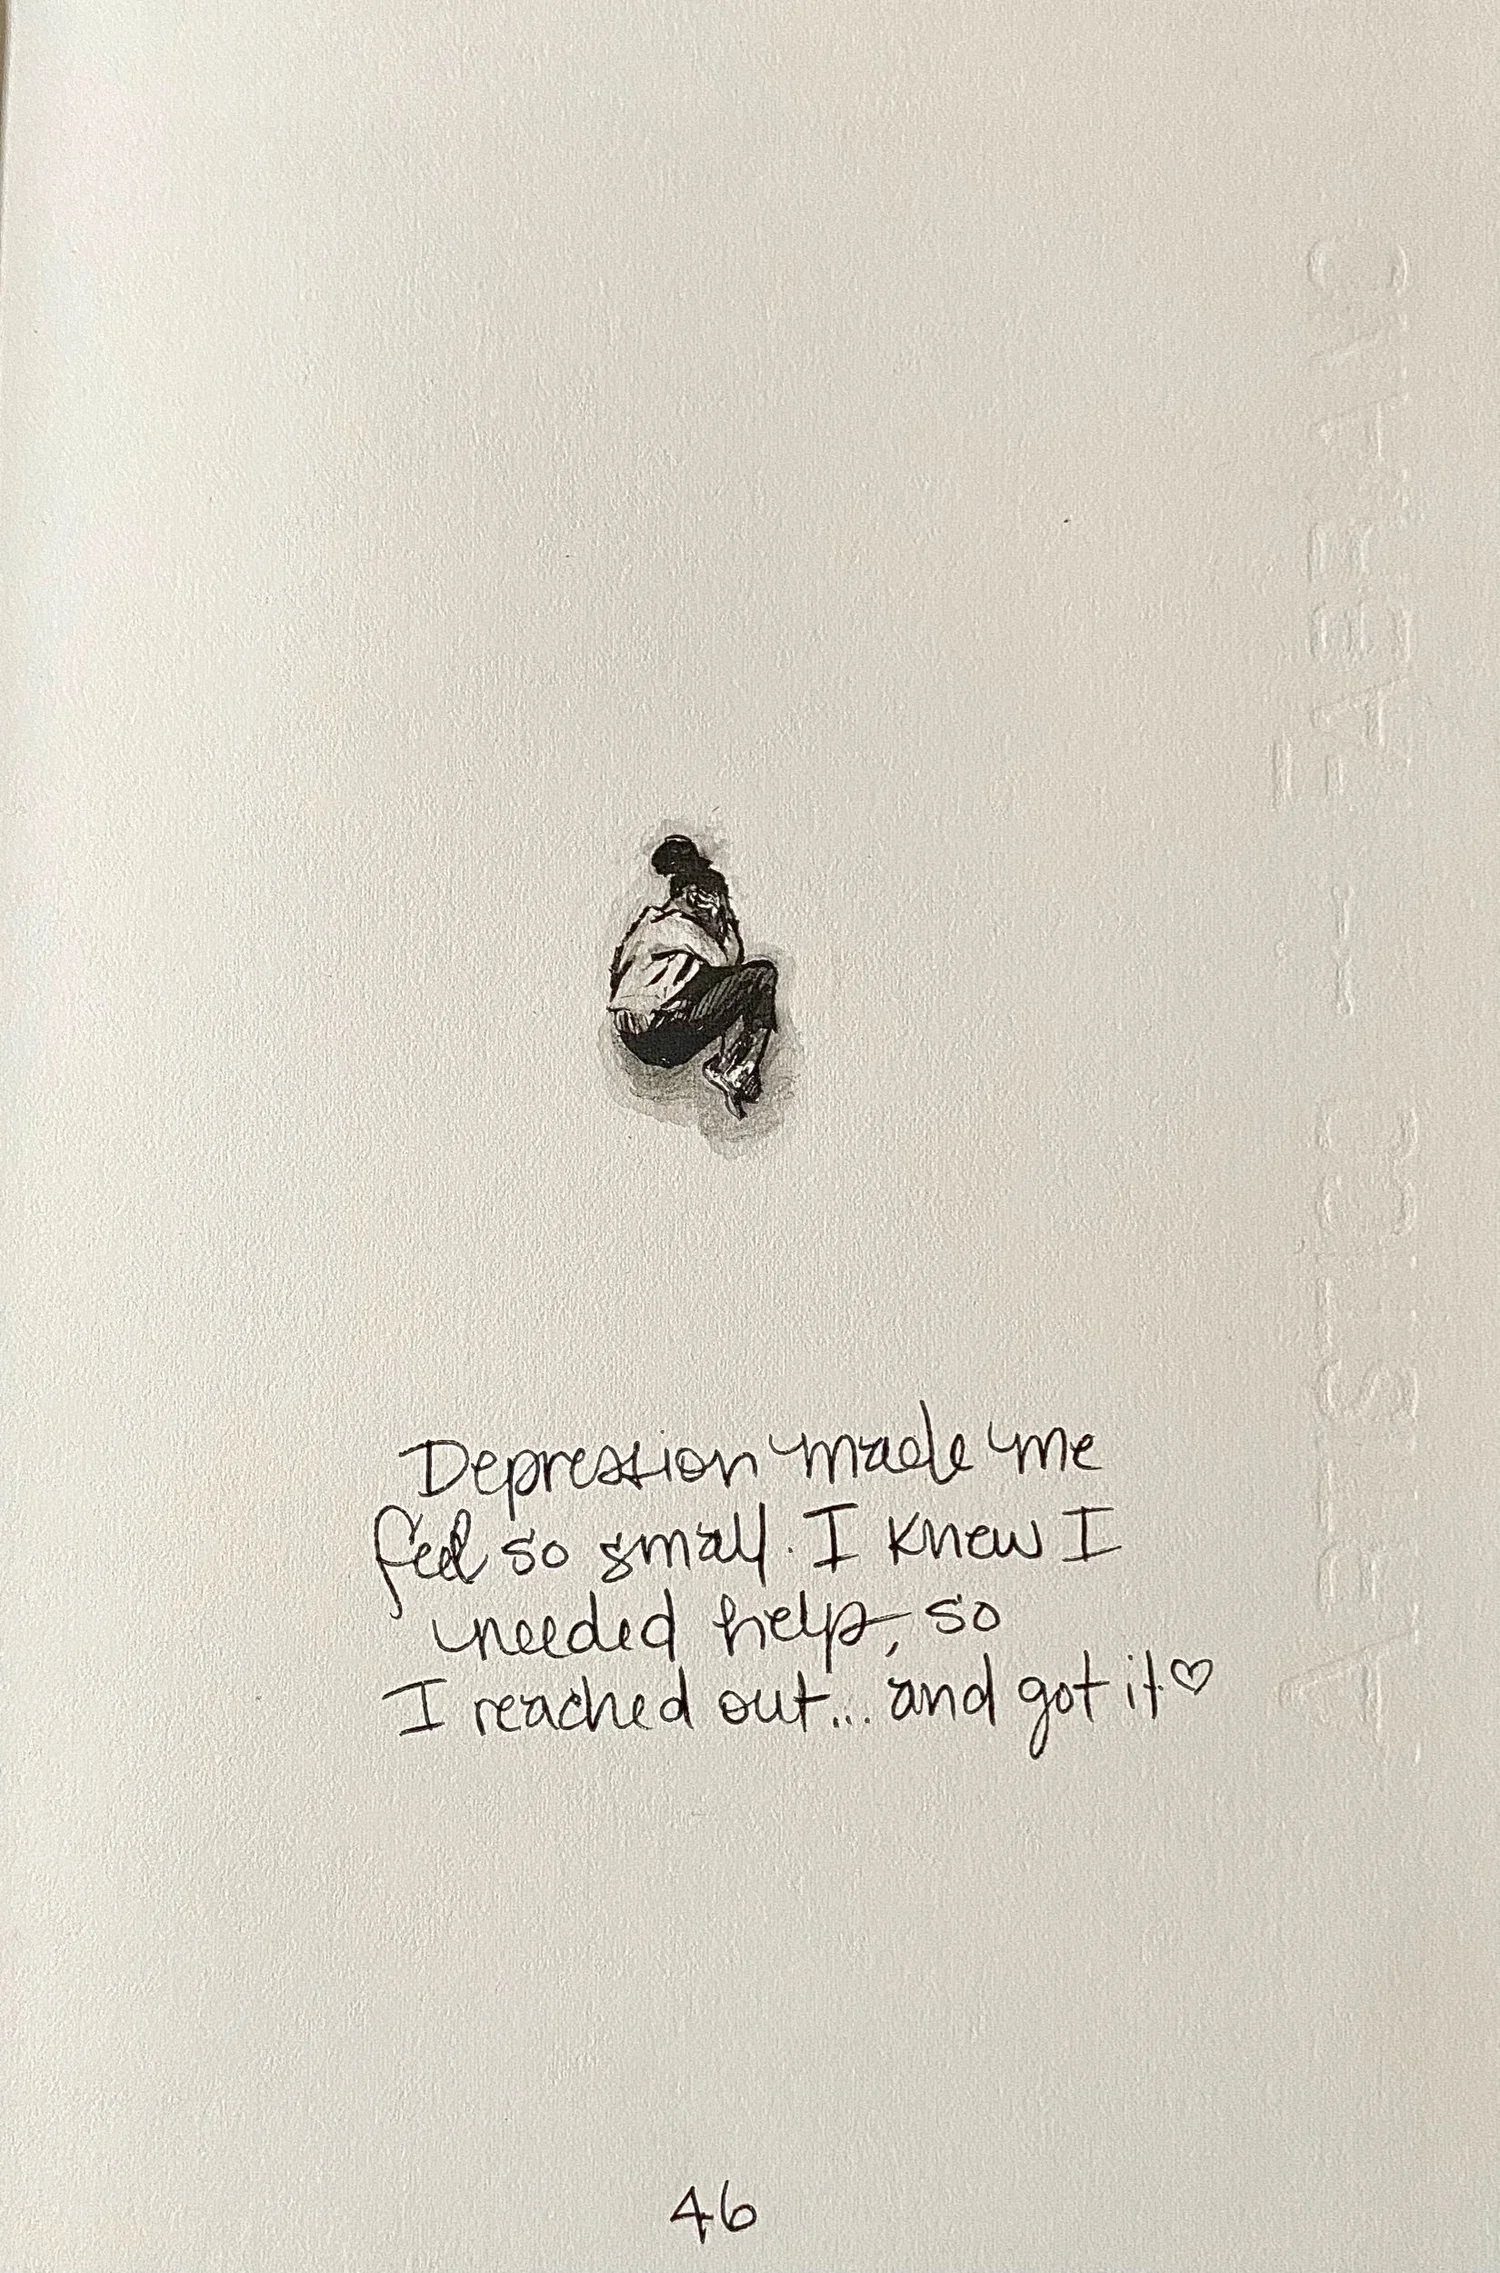 Depression made me
feel so small. I knew I
needed help, so
I reached out... and got it♡
46
ARTISTICO - FABRIANO